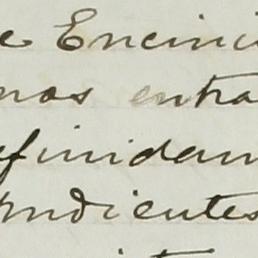 e Encini
nos entra
finidam
ndientes